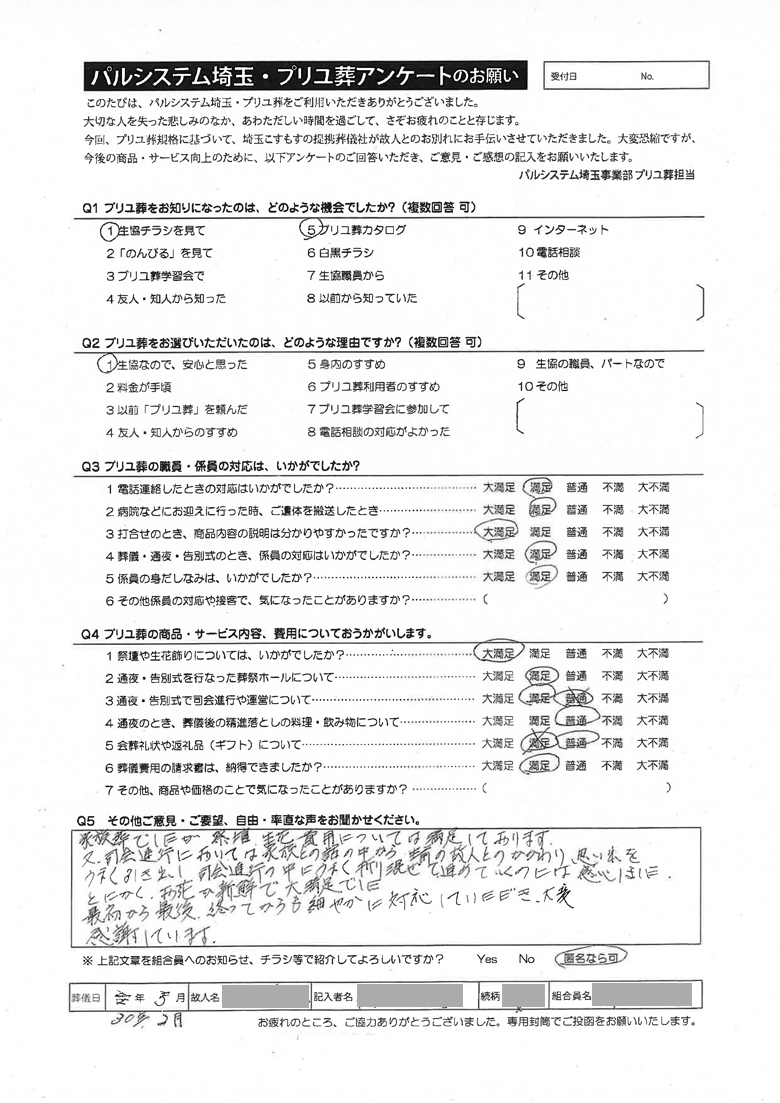 パルシステム埼玉・プリエ葬アンケートのお願い
受付日 No.
このたびは、パルシステム埼玉・プリエ葬をご利用いただきありがとうございました。
大切な人を失った悲しみのなか、あわただしい時間を過ごして、さぞお疲れのことと存じます。
今回、プリエ葬規格に基づいて、埼玉こすもすの提携葬儀社が故人とのお別れにお手伝いさせていただきました。大変恐縮ですが、
今後の商品・サービス向上のために、以下アンケートのご回答いただき、ご意見・ご感想の記入をお願いいたします。
パルシステム埼玉事業部プリエ葬担当
Q1 プリエ葬をお知りになったのは、どのような機会でしたか?(複数回答 可)
1 生協チラシを見て 5 プリエ葬カタログ 9 インターネット
2「のんびる」を見て 6 白黒チラシ 10 電話相談
3 プリエ葬学習会で 7 生協職員から 11 その他
4 友人・知人から知った 8 以前から知っていた
Q2 プリエ葬をお選びいただいたのは、どのような理由ですか?(複数回答 可)
1 生協なので、安心と思った 5 身内のすすめ 9 生協の職員、パートなので
2 料金が手頃 6 プリエ葬利用者のすすめ 10 その他
3 以前「プリエ葬」を頼んだ 7 プリエ葬学習会に参加して
4 友人・知人からのすすめ 8 電話相談の対応がよかった
Q3 プリエ葬の職員・係員の対応は、いかがでしたか?
1 電話連絡したときの対応はいかがでしたか?…………… 大満足 満足 普通 不満 大不満
2 病院などにお迎えに行った時、ご遺体を搬送したとき…………… 大満足 満足 普通 不満 大不満
3 打合せのとき、商品内容の説明は分かりやすかったですか?…………… 大満足 満足 普通 不満 大不満
4 葬儀・通夜・告別式のとき、係員の対応はいかがでしたか?…………… 大満足 満足 普通 不満 大不満
5 係員の身だしなみは、いかがでしたか?…………… 大満足 満足 普通 不満 大不満
6 その他係員の対応や接客で、気になったことがありますか?…………… ( )
Q4 プリエ葬の商品・サービス内容、費用についておうかがいします。
1 祭壇や生花飾りについては、いかがでしたか?…………… 大満足 満足 普通 不満 大不満
2 通夜・告別式を行なった葬祭ホールについて…………… 大満足 満足 普通 不満 大不満
3 通夜・告別式で司会進行や運営について…………… 大満足 満足 普通 不満 大不満
4 通夜のとき、葬儀後の精進落としの料理・飲み物について…………… 大満足 満足 普通 不満 大不満
5 会葬礼状や返礼品(ギフト)について…………… 大満足 満足 普通 不満 大不満
6 葬儀費用の請求書は、納得できましたか?…………… 大満足 満足 普通 不満 大不満
7 その他、商品や価格のことで気になったことがありますか?…………… ( )
Q5 その他ご意見・ご要望、自由・率直な声をお聞かせください。
家族葬でしたが 祭壇、生花、費用については満足しております。
又、司会進行においては家族との話の中から 生前の故人とのかかわり、思い出を
うまく引き出し 司会進行の中にうまく折り混ぜて進めていくのには感心しました。
とにかく、お花が新鮮で大満足でした
最初から最後、終ってからも細やかに対応していただき、大変
感謝しています。
※ 上記文章を組合員へのお知らせ、チラシ等で紹介してよろしいですか? Yes No 匿名なら可
葬儀日 年 月 故人名 記入者名 続柄 組合員名
30年 2月 お疲れのところ、ご協力ありがとうございました。専用封筒でご投函をお願いいたします。